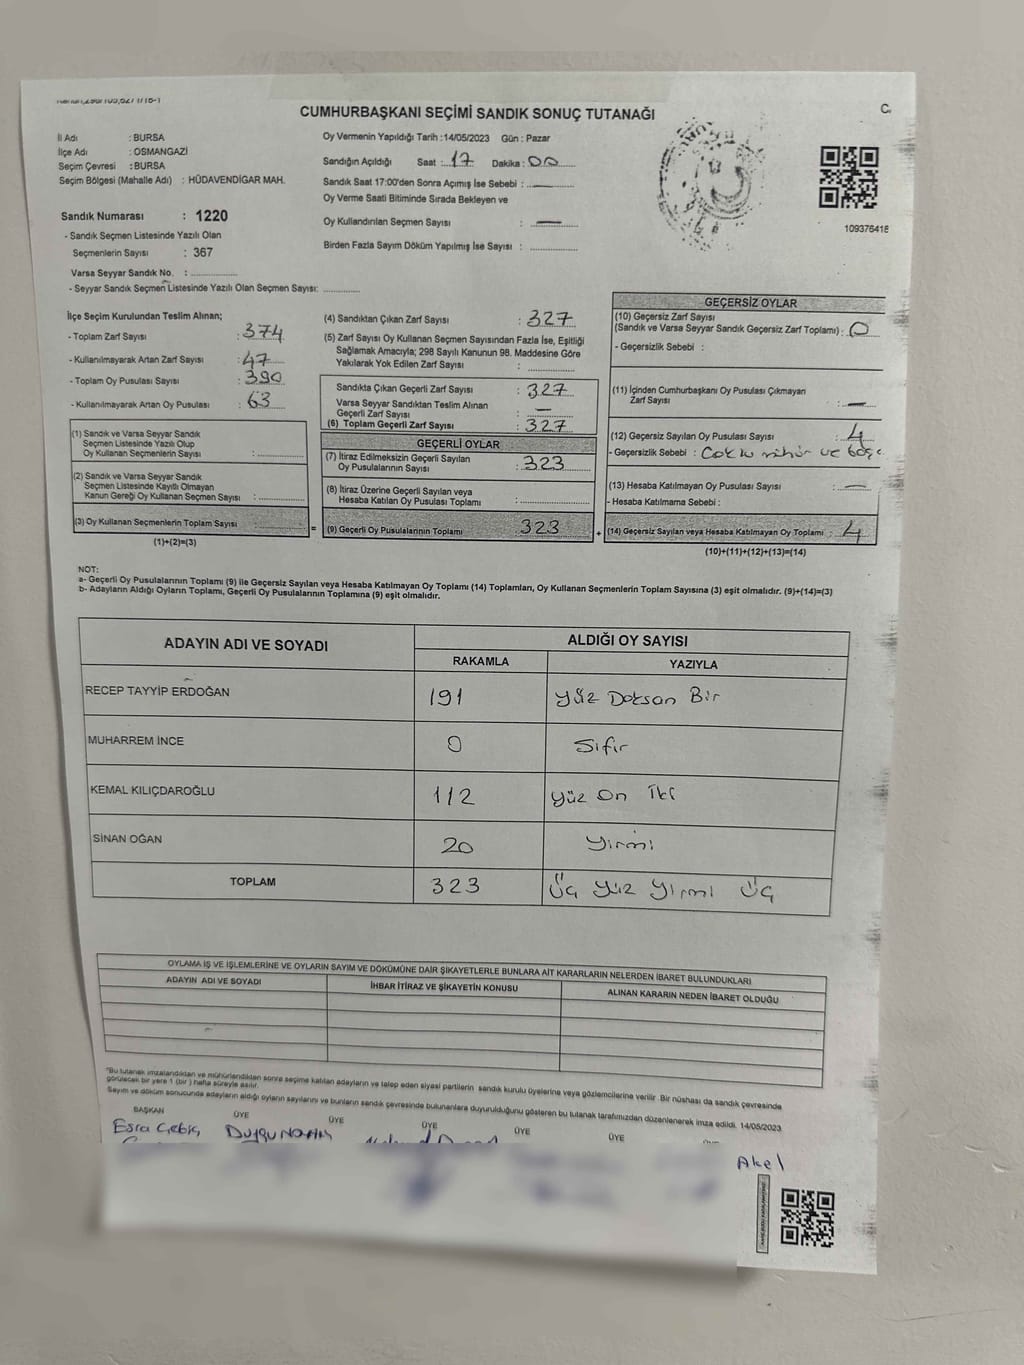 CUMHURBAŞKANI SEÇİMİ SANDIK SONUÇ TUTANAĞI
İl Adı : BURSA
İlçe Adı : OSMANGAZİ
Seçim Çevresi : BURSA
Seçim Bölgesi (Mahalle Adı) : HÜDAVENDİGAR MAH.
Sandık Numarası : 1220
- Sandık Seçmen Listesinde Yazılı Olan
Seçmenlerin Sayısı : 367
Varsa Seyyar Sandık No. :
- Seyyar Sandık Seçmen Listesinde Yazılı Olan Seçmen Sayısı:
Oy Vermenin Yapıldığı Tarih :14/05/2023 Gün : Pazar
Sandığın Açıldığı Saat : 17 Dakika : 00
Sandık Saat 17:00'den Sonra Açımış İse Sebebi : —
Oy Verme Saati Bitiminde Sırada Bekleyen ve
Oy Kullandırılan Seçmen Sayısı : —
Birden Fazla Sayım Döküm Yapılmış İse Sayısı :
109376418
İlçe Seçim Kurulundan Teslim Alınan;
- Toplam Zarf Sayısı : 374
- Kullanılmayarak Artan Zarf Sayısı : 47
- Toplam Oy Pusulası Sayısı : 390
- Kullanılmayarak Artan Oy Pusulası : 63
(1) Sandık ve Varsa Seyyar Sandık
Seçmen Listesinde Yazılı Olup
Oy Kullanan Seçmenlerin Sayısı :
(2) Sandık ve Varsa Seyyar Sandık
Seçmen Listesinde Kayıtlı Olmayan
Kanun Gereği Oy Kullanan Seçmen Sayısı :
(3) Oy Kullanan Seçmenlerin Toplam Sayısı
(1)+(2)=(3)
(4) Sandıktan Çıkan Zarf Sayısı : 327
(5) Zarf Sayısı Oy Kullanan Seçmen Sayısından Fazla İse, Eşitliği
Sağlamak Amacıyla; 298 Sayılı Kanunun 98. Maddesine Göre
Yakılarak Yok Edilen Zarf Sayısı :
Sandıkta Çıkan Geçerli Zarf Sayısı : 327
Varsa Seyyar Sandıktan Teslim Alınan
Geçerli Zarf Sayısı : —
(6) Toplam Geçerli Zarf Sayısı : 327
GEÇERLİ OYLAR
(7) İtiraz Edilmeksizin Geçerli Sayılan
Oy Pusulalarının Sayısı : 323
(8) İtiraz Üzerine Geçerli Sayılan veya
Hesaba Katılan Oy Pusulası Toplamı :
= (9) Geçerli Oy Pusulalarının Toplamı 323
GEÇERSİZ OYLAR
(10) Geçersiz Zarf Sayısı
(Sandık ve Varsa Seyyar Sandık Geçersiz Zarf Toplamı) : 0
- Geçersizlik Sebebi :
(11) İçinden Cumhurbaşkanı Oy Pusulası Çıkmayan
Zarf Sayısı : —
(12) Geçersiz Sayılan Oy Pusulası Sayısı : 4
- Geçersizlik Sebebi : Çoklu mühür ve boş
(13) Hesaba Katılmayan Oy Pusulası Sayısı : —
- Hesaba Katılmama Sebebi :
+ (14) Geçersiz Sayılan veya Hesaba Katılmayan Oy Toplamı : 4
(10)+(11)+(12)+(13)=(14)
NOT:
a- Geçerli Oy Pusulalarının Toplamı (9) ile Geçersiz Sayılan veya Hesaba Katılmayan Oy Toplamı (14) Toplamları, Oy Kullanan Seçmenlerin Toplam Sayısına (3) eşit olmalıdır. (9)+(14)=(3)
b- Adayların Aldığı Oyların Toplamı, Geçerli Oy Pusulalarının Toplamına (9) eşit olmalıdır.
ADAYIN ADI VE SOYADI ALDIĞI OY SAYISI
RAKAMLA YAZIYLA
RECEP TAYYİP ERDOĞAN 191 Yüz Doksan Bir
MUHARREM İNCE 0 Sıfır
KEMAL KILIÇDAROĞLU 112 Yüz On İki
SİNAN OĞAN 20 Yirmi
TOPLAM 323 Üç Yüz Yirmi Üç
OYLAMA İŞ VE İŞLEMLERİNE VE OYLARIN SAYIM VE DÖKÜMÜNE DAİR ŞİKAYETLERLE BUNLARA AİT KARARLARIN NELERDEN İBARET BULUNDUKLARI
ADAYIN ADI VE SOYADI İHBAR İTİRAZ VE ŞİKAYETİN KONUSU ALINAN KARARIN NEDEN İBARET OLDUĞU
"Bu tutanak imzalandıktan ve mühürlendikten sonra seçime katılan adayların ve talep eden siyasi partilerin sandık kurulu üyelerine veya gözlemcilerine verilir. Bir nüshası da sandık çevresinde
görülecek bir yere 1 (bir) hafta süreyle asılır.
Sayım ve döküm sonucunda adayların aldığı oyların sayılarını ve bunların sandık çevresinde bulunanlara duyurulduğunu gösteren bu tutanak tarafımızdan düzenlenerek imza edildi. 14/05/2023
BAŞKAN ÜYE ÜYE ÜYE ÜYE ÜYE
Esra
Akel